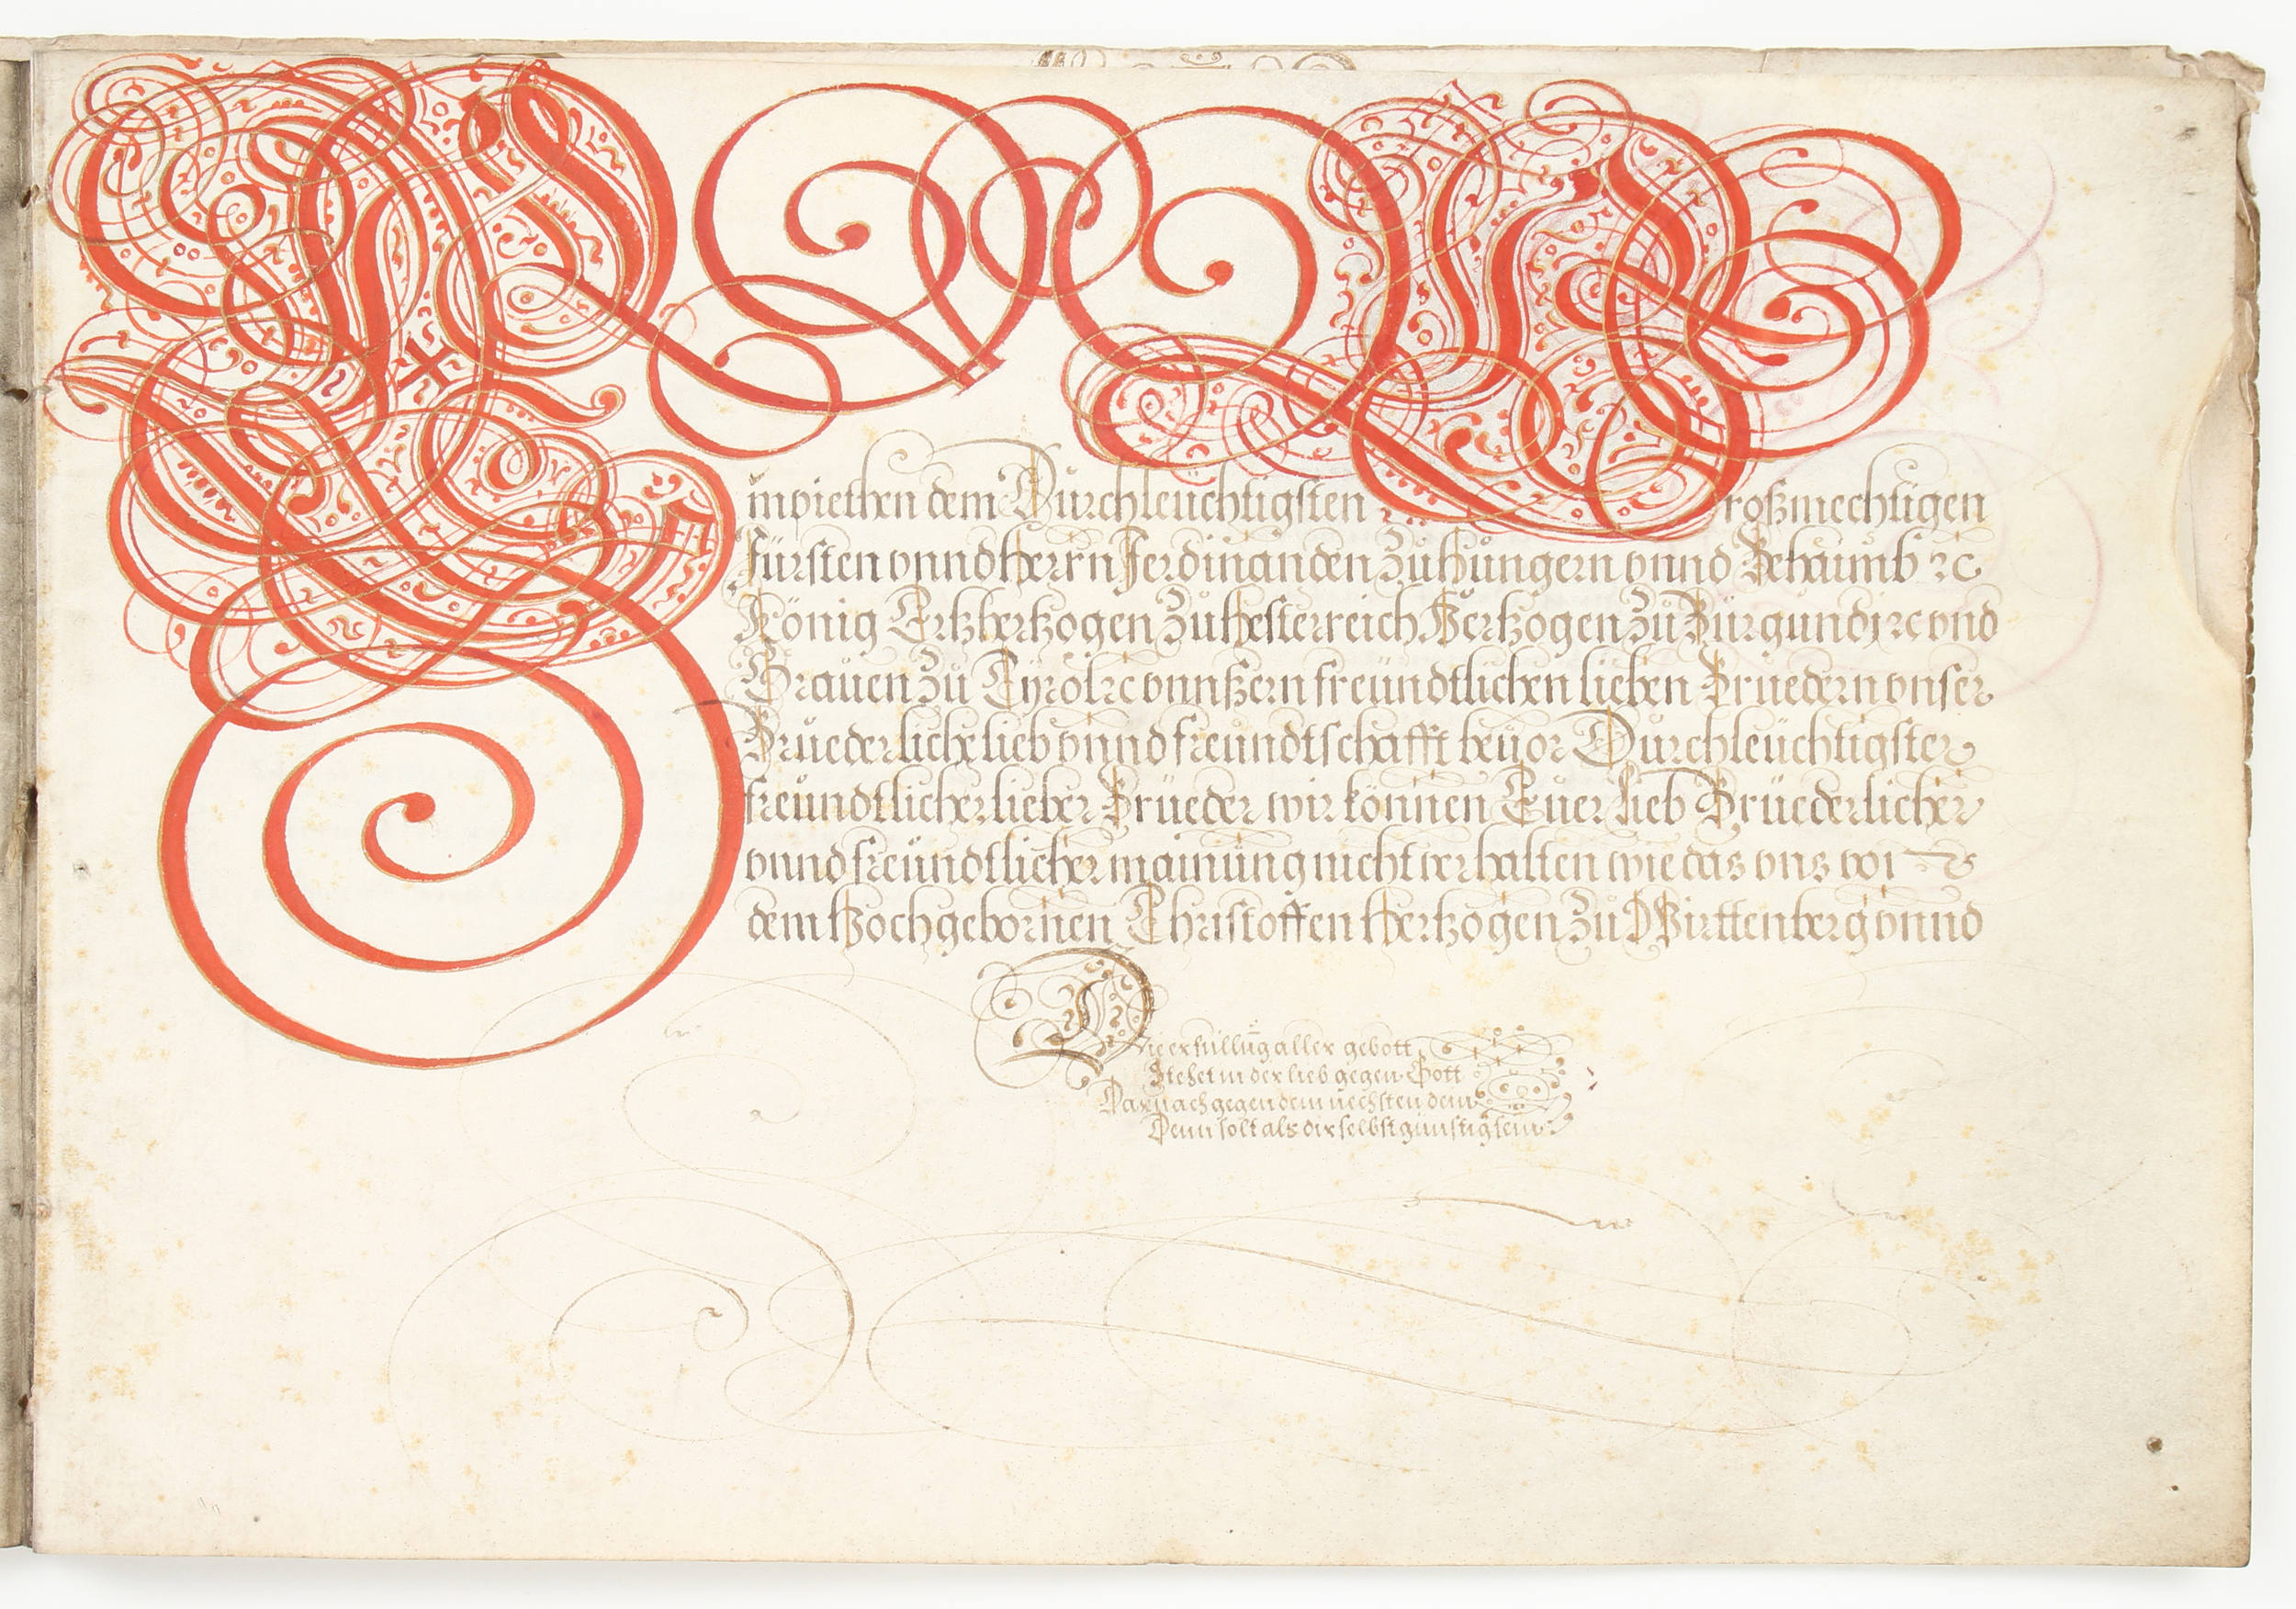 Empiethen dem Durchleüchtigsten Großmechtigen
fürsten vnnd Herrn Ferdinanden zu Hungern vnnd Behaimb ꝛc
König Ertzhertzogen zu Hesterreich Hertzogen zu Bürgundj ꝛc vnd
Grauen zu Tyrol ꝛc vnnßern freündtlichen lieben Bruedern vnser
Brüederliche lieb vnnd freundtschafft beuor Durchleüchtigster
freündtlicher lieber Brüeder wir können Euer lieb Brüederlicher
vnnd freündtlicher mainüng nicht verhalten wie das vns von
dem Hochgebornen Christoffen Hertzogen zu Wirttenberg vnnd
Die erfüllūg aller gebott
Stehet in der lieb gegen Gott
Darnach gegen dem nechsten dein
Dem solt als dir selbst günstig sein